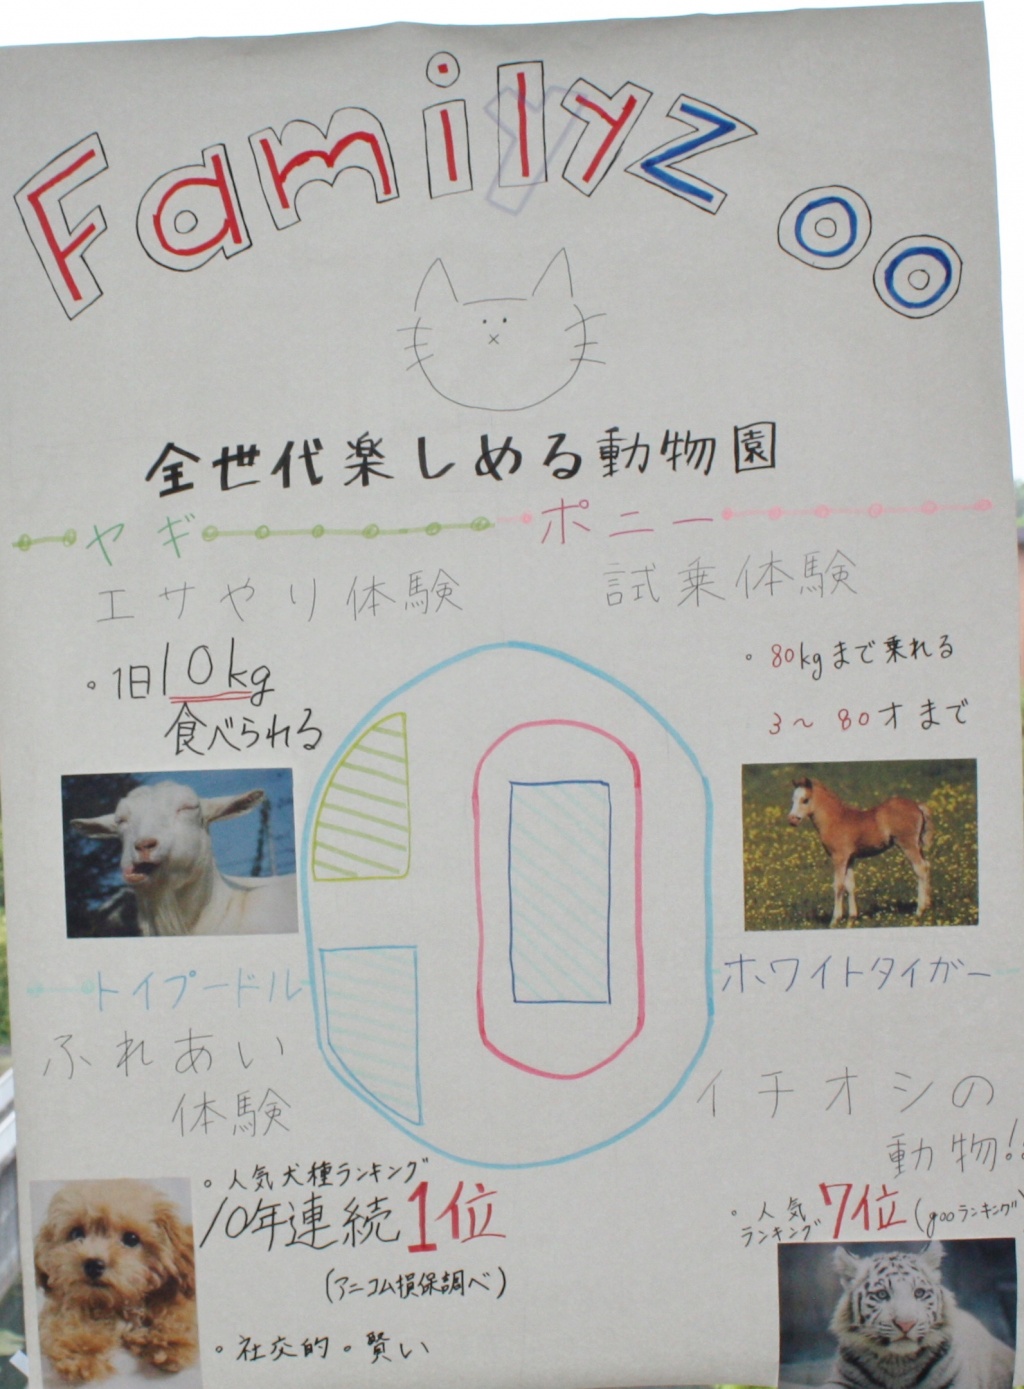 Familyzoo
全世代楽しめる動物園
ヤギ
エサやり体験
・1日10kg
食べられる
ポニー
試乗体験
・80kgまで乗れる
3～80才まで
トイプードル
ふれあい
体験
・人気犬種ランキング
10年連続1位
(アニコム損保調べ)
・社交的・賢い
ホワイトタイガー
イチオシの
動物!!
・人気
ランキング7位(gooランキング)